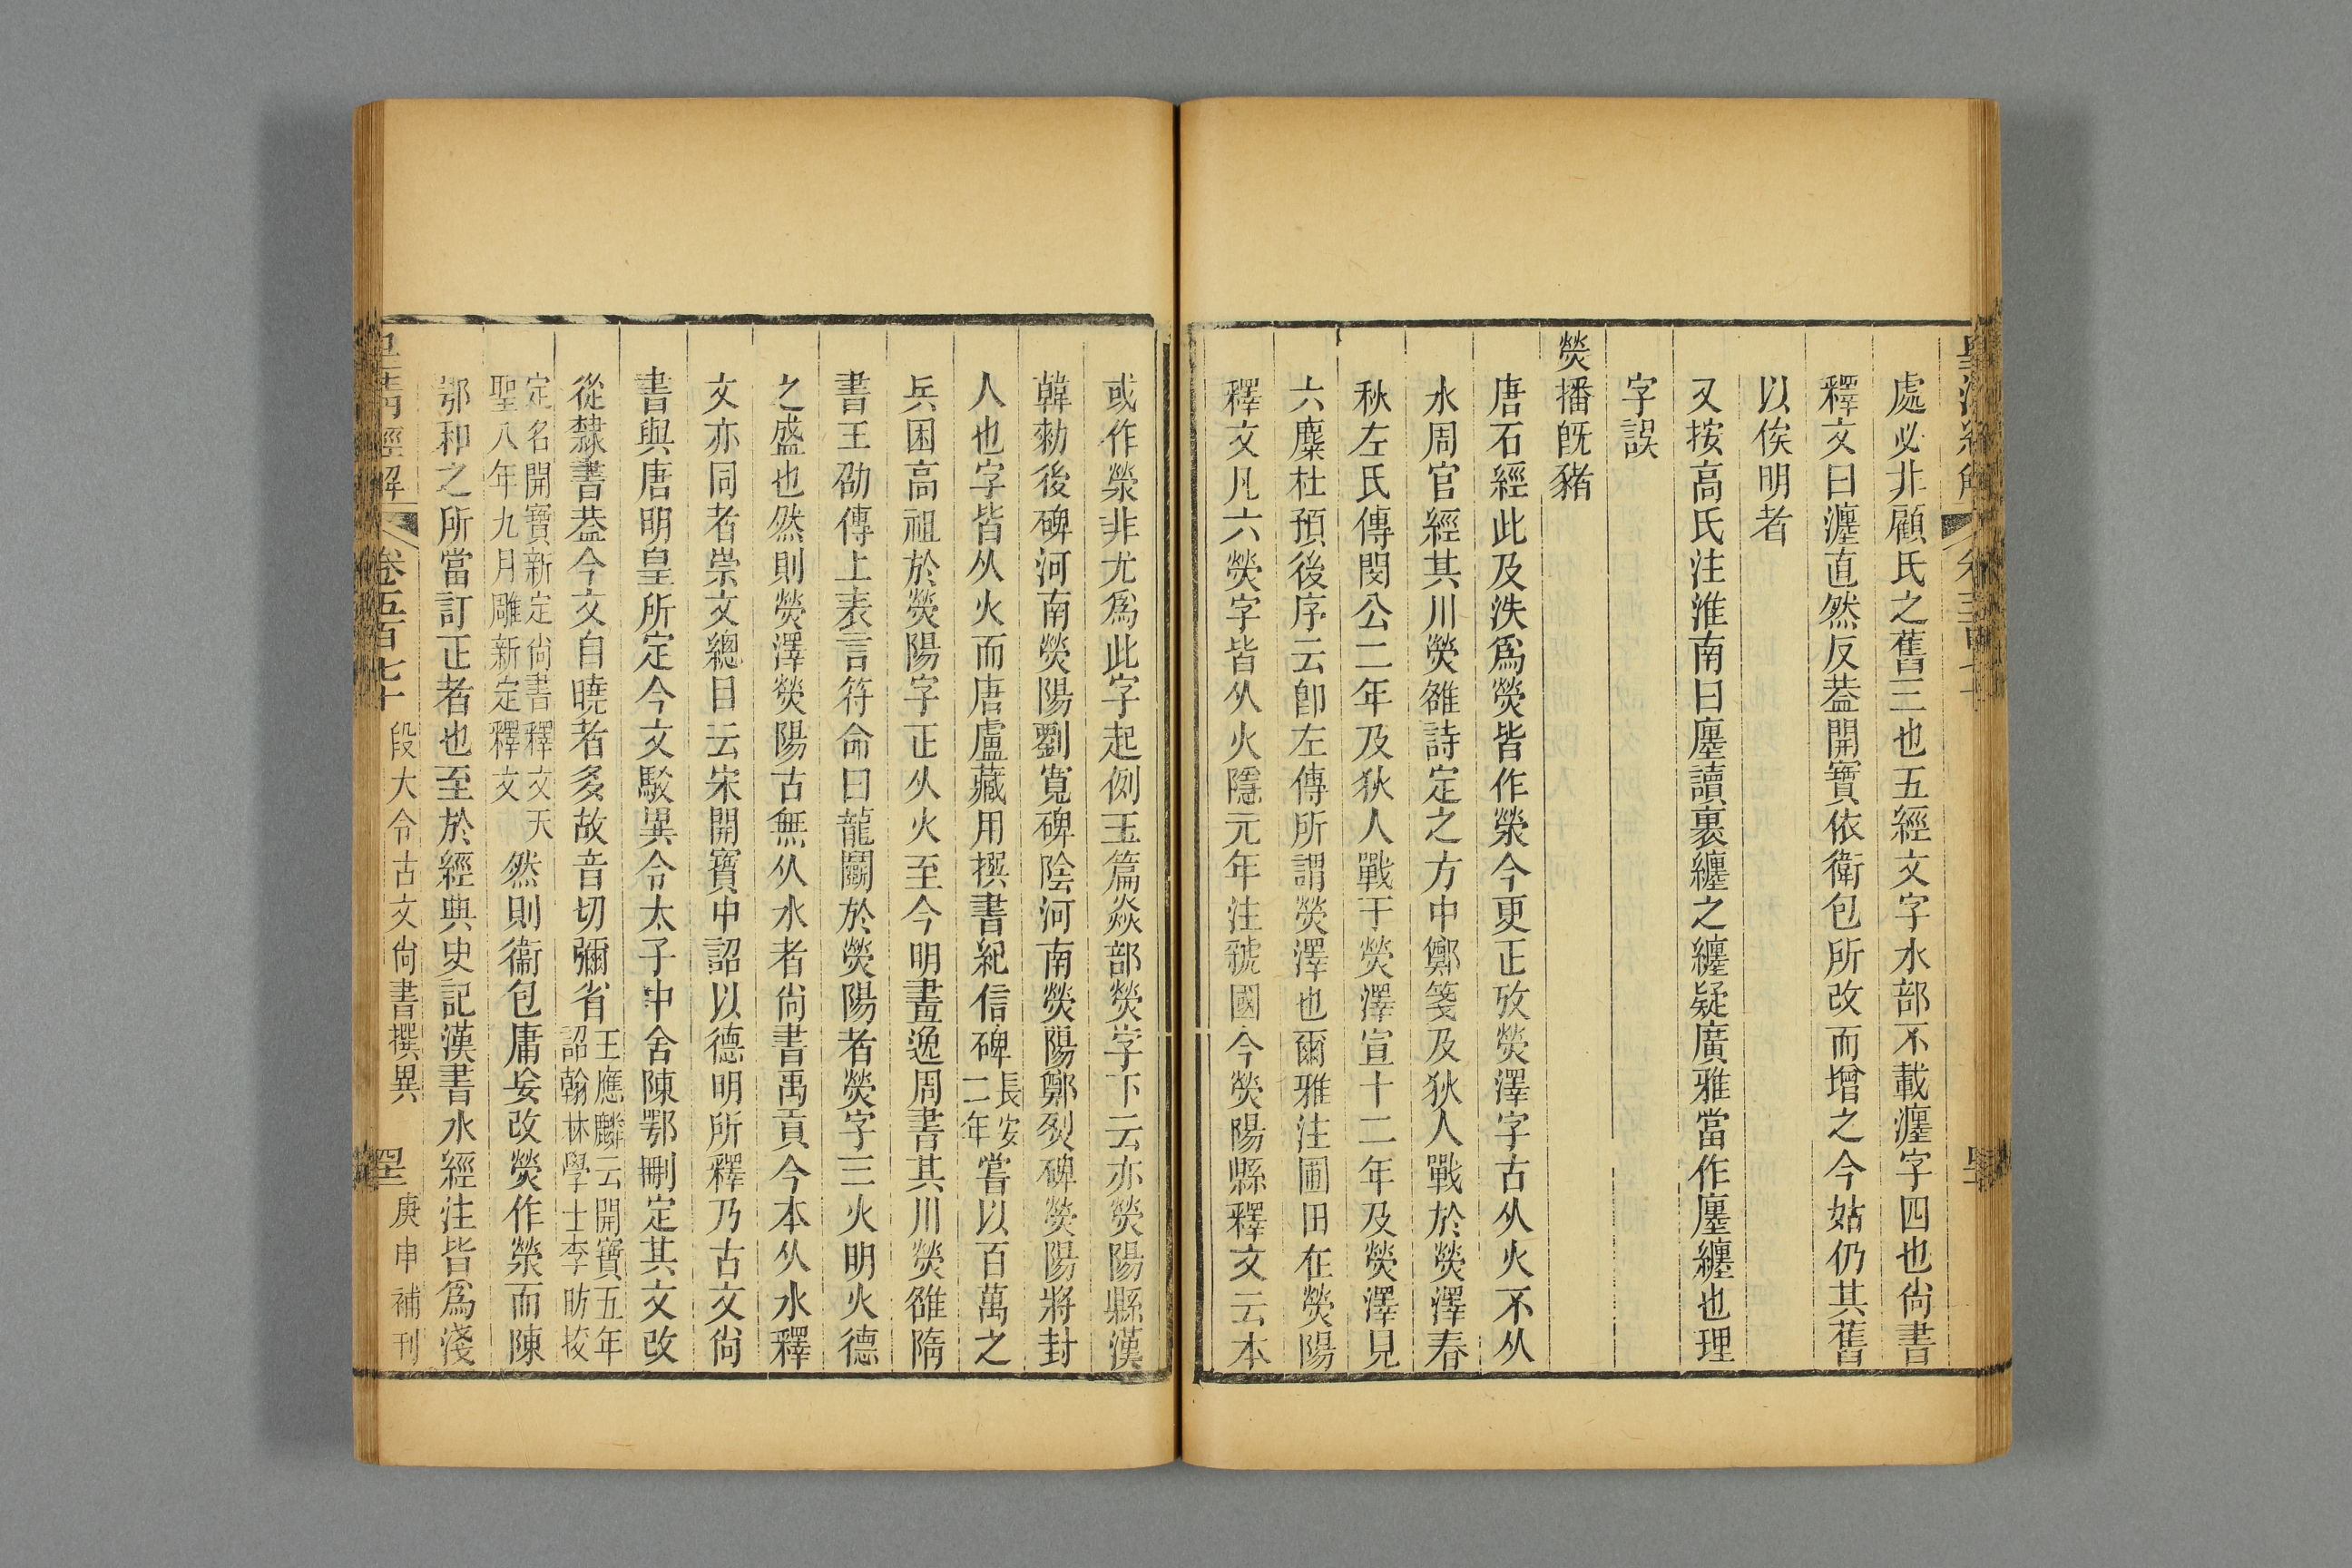 處必非顧氏之舊三也五經文字水部不載瀍字四也尙書
釋文曰瀍直然反葢開寶依衛包所改而增之今姑仍其舊
以俟明者
又按高氏注淮南曰廛讀裹纏之纏疑廣雅當作廛纏也理
字誤
熒播旣豬
唐石經此及泆爲熒皆作滎今更正攷熒澤字古从火不从
水周官經其川熒雒詩定之方中鄭箋及狄人戰於熒澤春
秋左氏傳閔公二年及狄人戰于熒澤宣十二年及熒澤見
六麋杜預後序云卽左傳所謂熒澤也爾雅注圃田在熒陽
釋文凡六熒字皆从火隱元年注虢國今熒陽縣釋文云本
或作滎非尤爲此字起例玉篇焱部熒字下云亦熒陽縣漢
韓勑後碑河南熒陽劉寬碑陰河南熒陽鄭烈碑熒陽將封
人也字皆从火而唐盧藏用撰書紀信碑長安二年嘗以百萬之
兵困高祖於熒陽字正从火至今明畫逸周書其川熒雒隋
書王劭傳上表言符命曰龍鬬於熒陽者熒字三火明火德
之盛也然則熒澤熒陽古無从水者尙書禹貢今本从水釋
文亦同者崇文總目云宋開寶中詔以德明所釋乃古文尙
書與唐明皇所定今文駁異令太子中舍陳鄂刪定其文改
從隸書葢今文自曉者多故音切彌省王應麟云開寶五年詔翰林學士李昉挍
定名開寶新定尙書釋文天聖八年九月雕新定釋文然則衞包庸妄改熒作滎而陳
鄂和之所當訂正者也至於經典史記漢書水經注皆爲淺
皇清經解 卷五百七十 段大令古文尙書撰異 庚申補刊